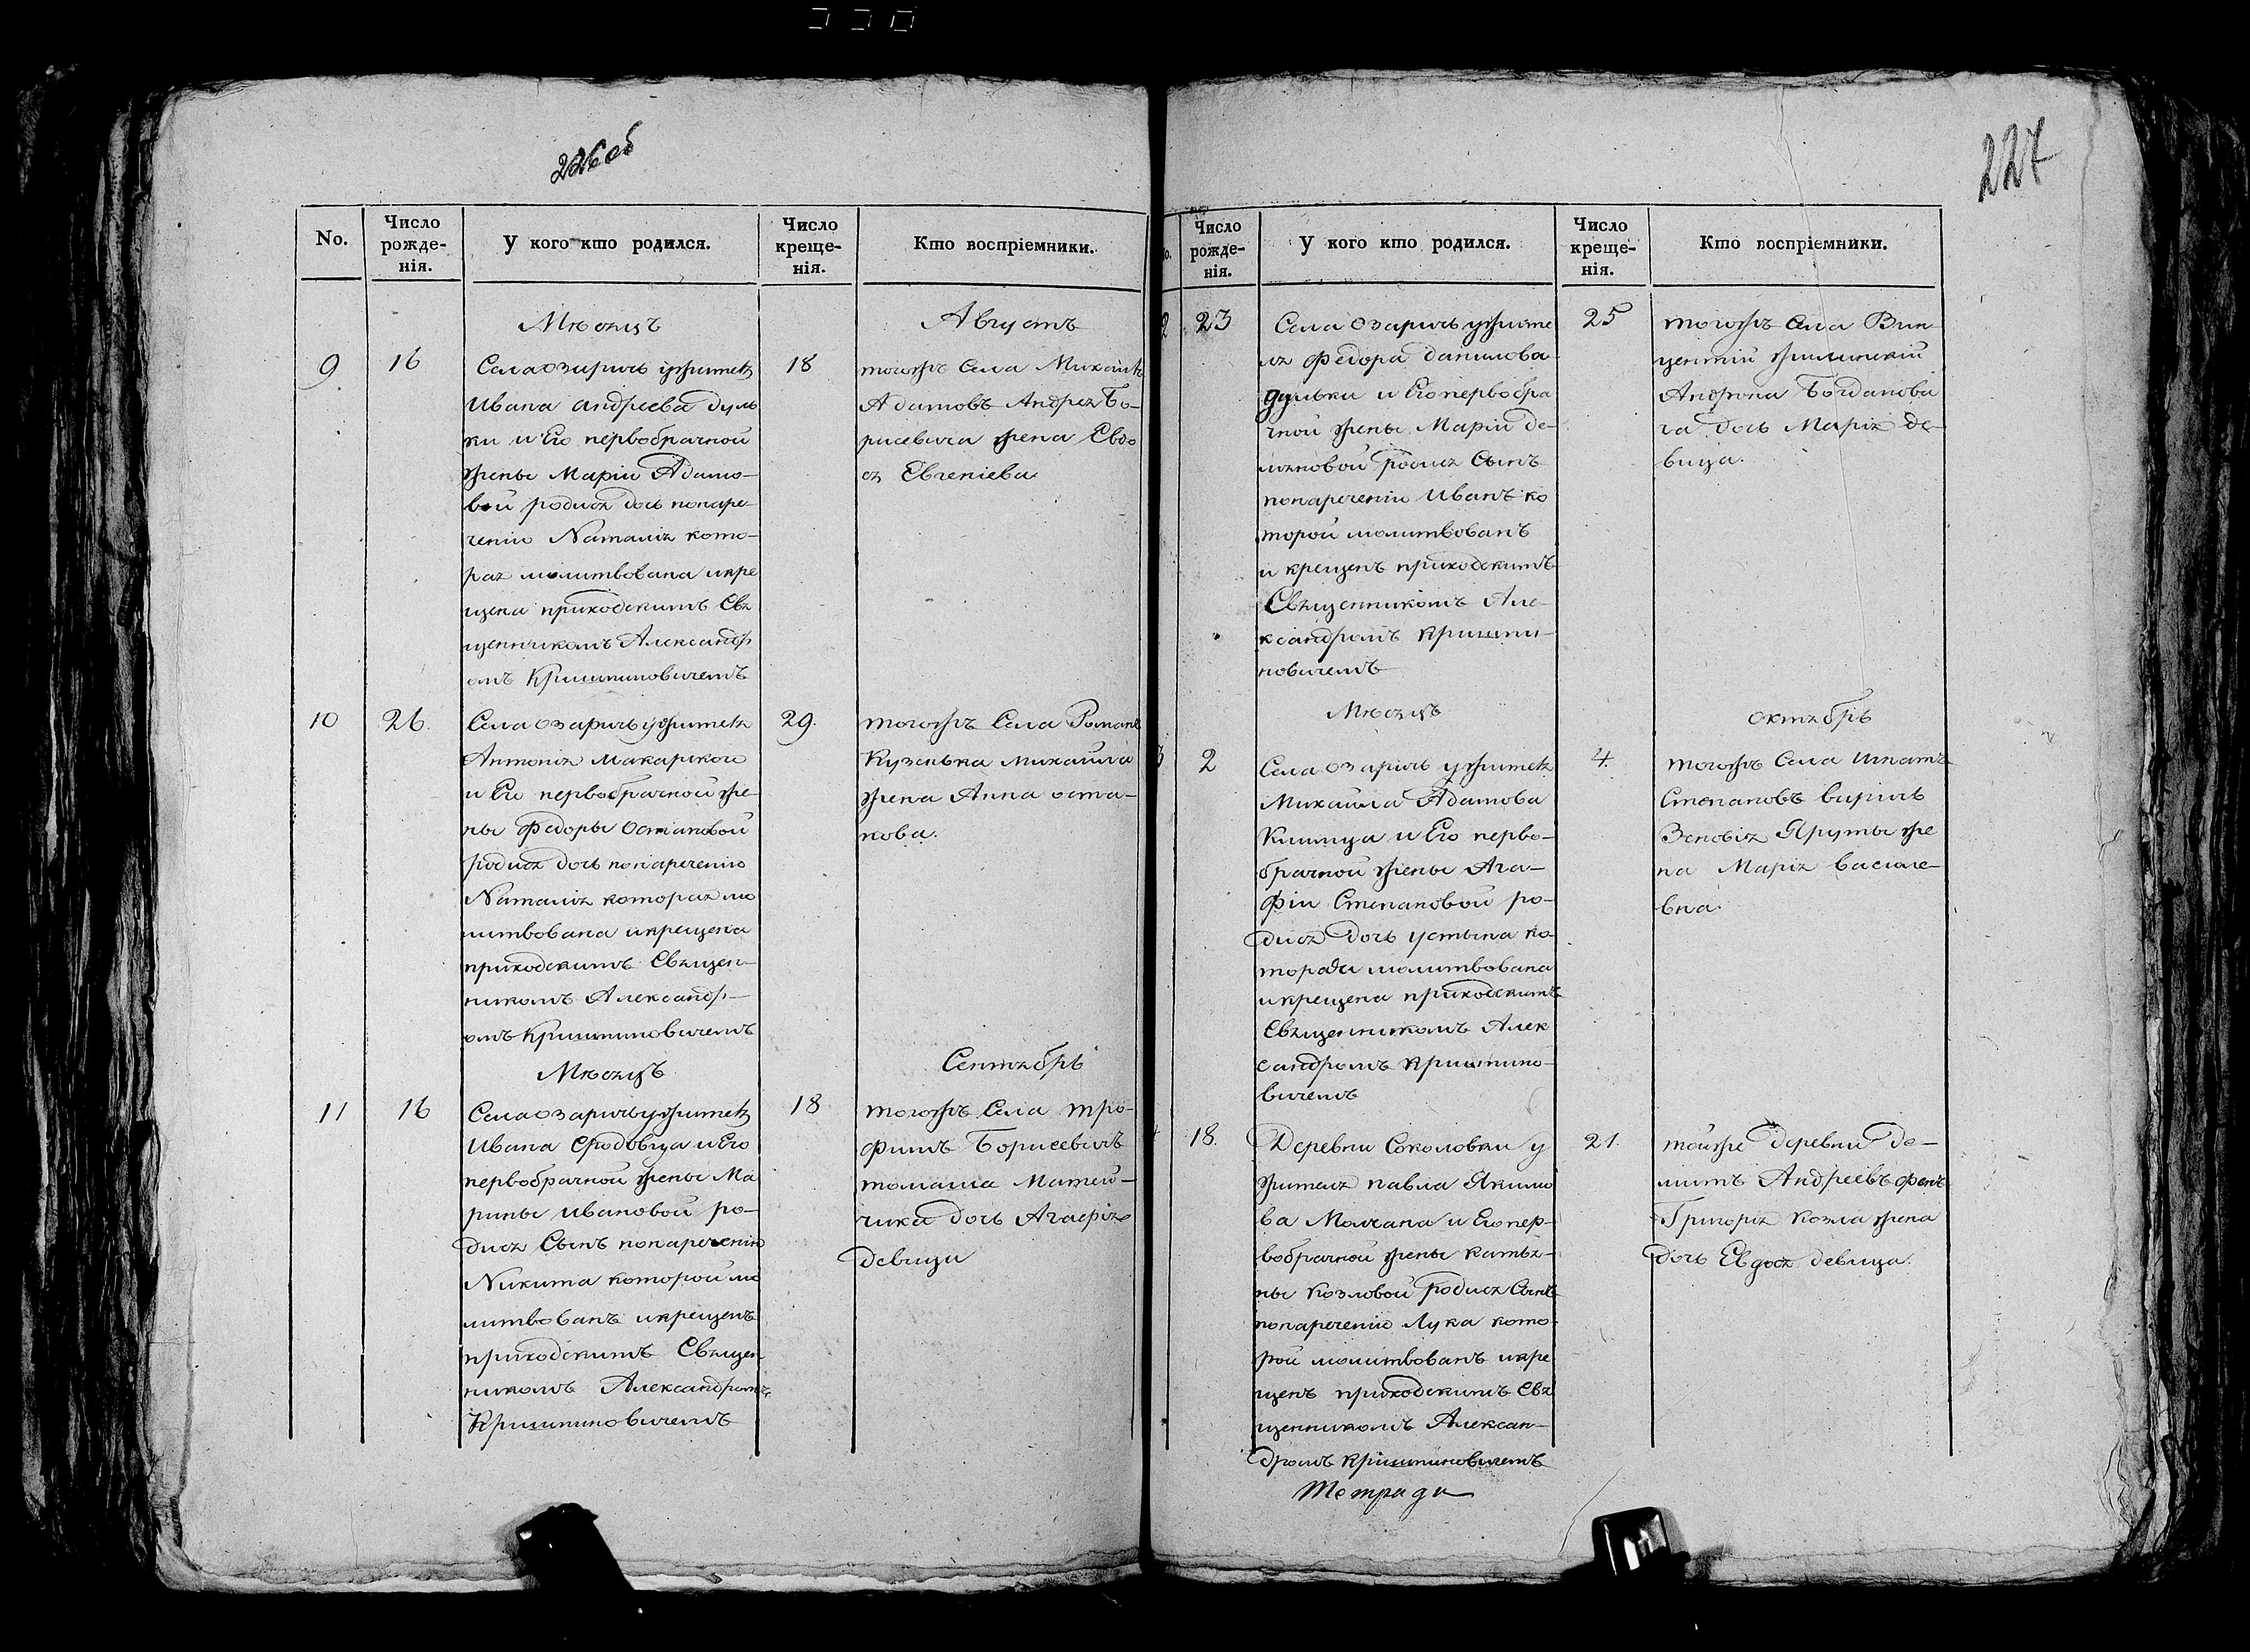 226об
No.
Число рожде-нія.
У кого кто родился.
Число креще-нія.
Кто воспріемники.
Мѣсяцъ
Августъ
9
16
18
Села озаричъ ужителя
Ивана андреева дуль
ки и Его первобрачной
жены Маріи Адамо-
вой родися дочь понаре-
ченію Наталія кото-
рая молитвована икре
щена приходскимъ Свя
щенникомъ Александр
омъ Кришпиновичемъ
тогожъ Села Михаилъ
Адамовъ Андрея Бо-
рисевича жена Евдо
ся Евгеніева
10
26.
29.
Села озаричъ ужителя
Антонія Макарского
и Его первобрачной же-
ны Федоры Остаповой
родися дочь понареченію
Наталія которая мо
литвована икрещена
приходскимъ Священ-
никомъ Александр-
омъ Кришпиновичемъ
тогожъ Села Романъ
Кузенька Михаила
жена Анна оста-
пова.
Мѣсяцъ
Сентябрь
11
16
18
Села озаричъ ужителя
Ивана Сродовца и Его
первобрачной жены Ма
рины Ивановой ро-
дися Сынъ понареченію
Никита которой мо
литвованъ икрещенъ
приходскимъ Священ
никомъ Александромъ
Кришпиновичемъ
тогожъ Села тро-
фимъ Борисевичъ
томаша Матей-
чика дочь Агафія
девица
227
Число рожде-нія.
У кого кто родился.
Число креще-нія.
Кто воспріемники.
23
25
Села озаричъ ужите
ля Федора данилова
дульки и Его первобра
чной жены Маріи де-
мяновой родися Сынъ
понареченію Иванъ ко
торой молитвованъ
и крещенъ приходскимъ
Священникомъ Але-
ксандромъ Кришпи-
новичемъ
тогожъ Села Вин
центій
Андрона Богданови
ча дочь Марія де-
вица.
Мѣсяцъ
октябрь
2
4.
Села озаричъ ужителя
Михаила Адамова
Климца и Его перво-
брачной жены Ага-
фіи Степановой ро-
дися дочь устына ко-
торая молитвована
икрещена приходскимъ
Священникомъ Алек
сандромъ Кришпино-
вичемъ
тогожъ Села Игнатъ
Степановъ
Зеновія Яруты же
на Марія василе-
вна
18.
21.
Деревни Соколовки у
жителя павла Якимо
ва Молчана и Его пер-
вобрачной жены
ны козловой родися Сынъ
понареченію Лука кото-
рой молитвованъ икре
щенъ приходскимъ Свя
щенникомъ Алексан-
дромъ Кришпиновичемъ
тойже деревни де-
мидъ Андреевъ
Григорія козла жена
дочь Евдося девица.
Тетради